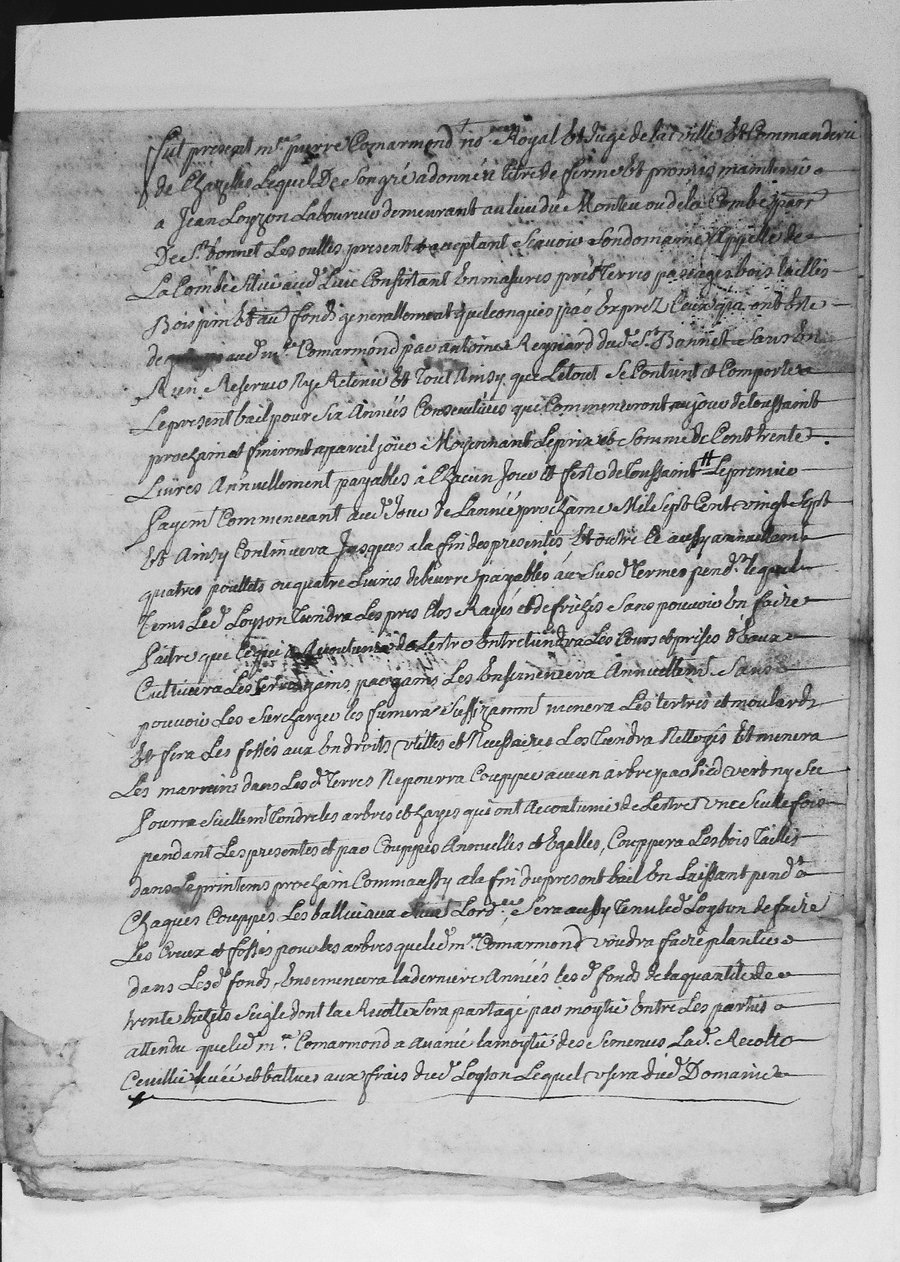 fut present mr pierre Comarmond nore Royal Et Juge de la ville Et Commanderie
de Chazelles Lequel De son gré a donné a titre de ferme Et promis maintenir
a Jean Loyzon Laboureur demeurant au lieu du Monteu ou de la Combe parr
De St bonnet Les oulles present & acceptant Scavoir Son domaine Appellé de
La Combe Situé aud Lieu Consistant En masures prés Terres pasçages bois taillis
Bois pin Et autt fonds generallement quelconques pas Exprez Ceux qui ont Este
de aud mr Comarmond par antoine Reynard dud St Bonnet Sans En
Rien Reserver Ny Retenir Et Tout Ainsy que Le tout Se Contient et Comporte
Le present bail pour Six Années Consecutives qui Commenceront au jour de toussaint
prochain et finiront a pareil jour Moyennant Le prix et Somme de Cent trente
Livres Annuellement payables à Chacun Jour Et feste de toussaint Le premier
Payemt Commenceant aud Jour de L'année prochaine Mil Sept Cent vingt Sept
Et Ainsy Continuera Jusques a la fin des presentes Et outre Ce aussy annuellemt
quatres poullets ou quatre Livres de beurre payables aux Susd Termes pendt Lequel
tems Led Loyson tiendra Les prés Clos Rayés et defrichés Sans pouvoir En faire
Paitre que Ceux qui accoutumé de L'estre Entretiendra Les Cours et prises d'Eaux
Cultivera Les gams par gams Les Ensemencera Annuellemt Sans
pouvoir Les Surcharger les fumera Suffizammt menera Les tertres et moulards
Et fera Les fossés aux Endroits utilles et Necessaires Les Tiendra Nettoyés Et menera
Les marrains dans Lesd Terres Ne pourra Coupper aucun arbre par pied vert ny Sec
Pourra Seullemt Tondre les arbres et hayes qui ont Accoutumé de L'estre Une Seule fois
pendant Les presentes et par Couppes Annuelles et Egalles, Couppera Les bois Taillis
dans Le printems prochain Comm aussy a la fin du present bail En Laissant pendt
Chaques Couppes Les balliveaux Suivt L'ordce Sera aussy Tenu led Loyson de faire
Les Creux et fossés pour les arbres que led mr Comarmond voudra faire planter
dans Lesd fonds, Ensemencera la derniere Années lesd fonds de la quantité de
trente bichets Seigle dont la Recolte Sera partagé par moytié Entre Les parties
attendu que led mr Comarmond a avancé la moytié des Semences Lad Recolte
Ceuillie Levée et battues aux frais dud Loyson Lequel usera dud Domaine